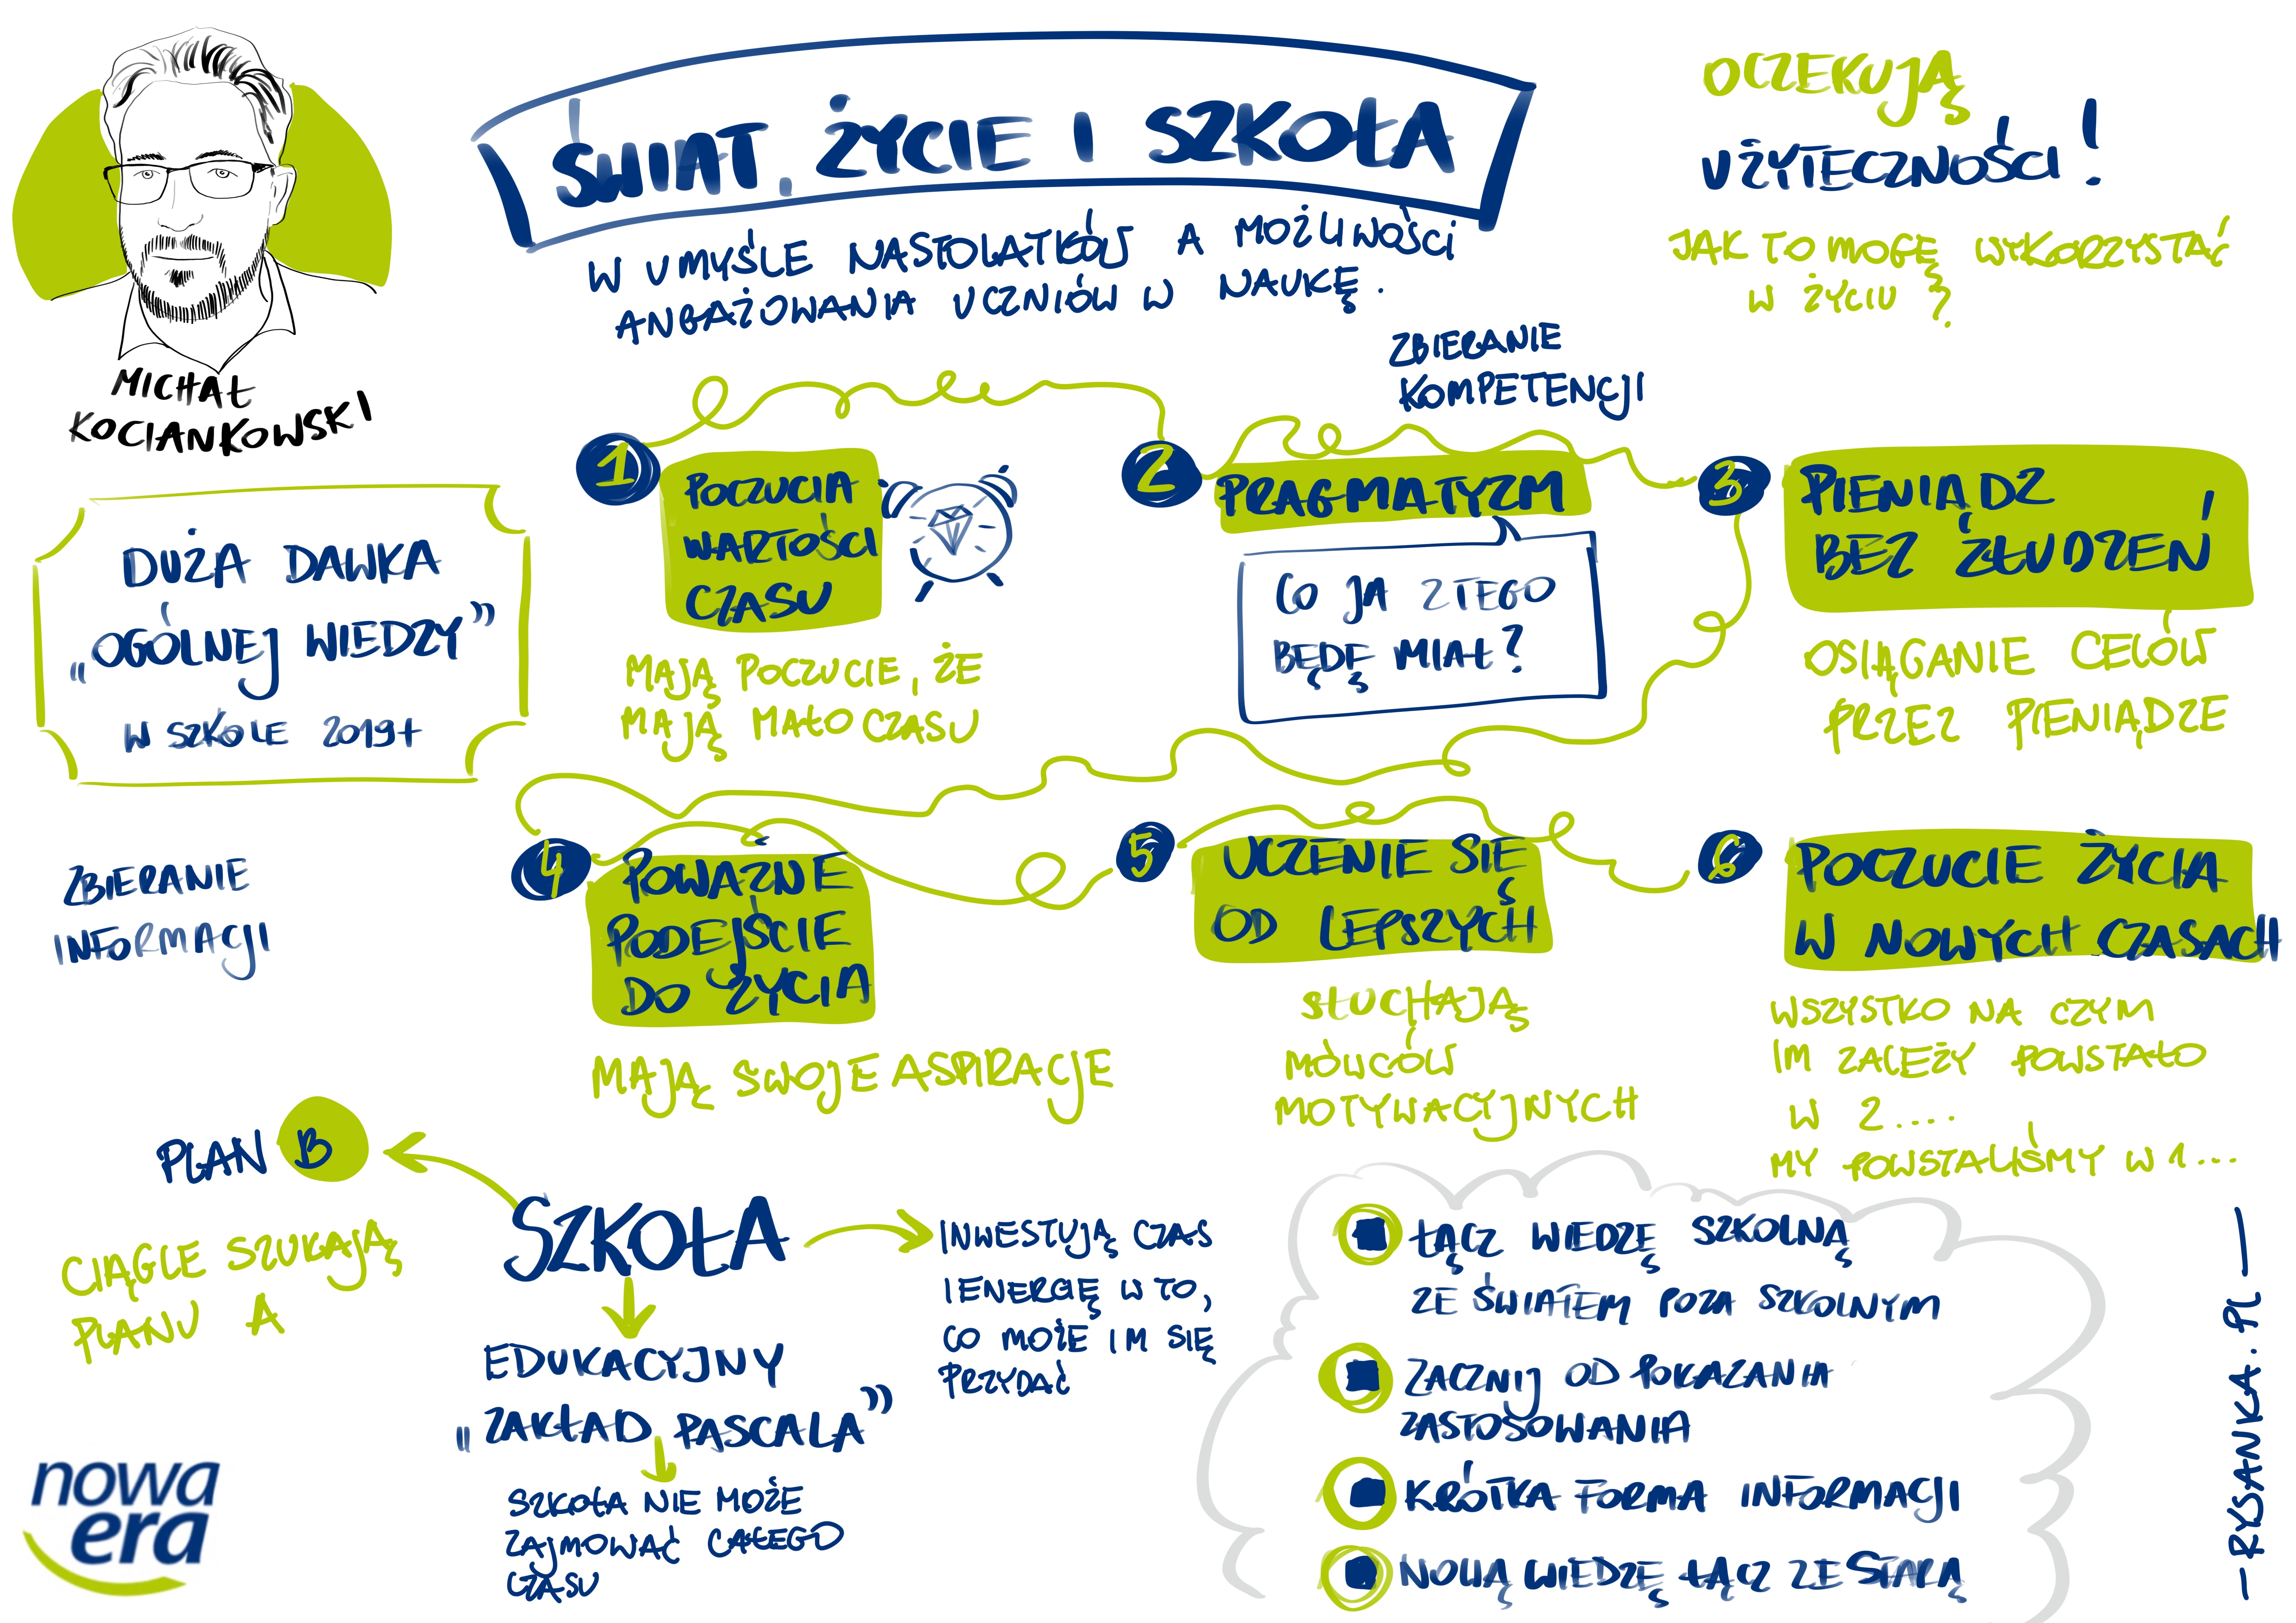 ŚWIAT, ŻYCIE I SZKOŁA
W UMYŚLE NASTOLATKÓW A MOŻLIWOŚCI
ANGAŻOWANIA UCZNIÓW W NAUKĘ.
OCZEKUJĄ
UŻYTECZNOŚCI!
JAK TO MOGĘ WYKORZYSTAĆ
W ŻYCIU?
MICHAŁ
KOCIANKOWSKI
DUŻA DAWKA
„OGÓLNEJ WIEDZY”
W SZKOLE 2019+
ZBIERANIE
INFORMACJI
1
POCZUCIA
WARTOŚCI
CZASU
MAJĄ POCZUCIE, ŻE
MAJĄ MAŁO CZASU
ZBIERANIE
KOMPETENCJI
2
PRAGMATYZM
CO JA Z TEGO
BĘDĘ MIAŁ?
3
PIENIĄDZ
BEZ ZŁUDZEŃ
OSIĄGANIE CELÓW
PRZEZ PIENIĄDZE
4
POWAŻNE
PODEJŚCIE
DO ŻYCIA
MAJĄ SWOJE ASPIRACJE
5
UCZENIE SIĘ
OD LEPSZYCH
SŁUCHAJĄ
MÓWCÓW
MOTYWACYJNYCH
6
POCZUCIE ŻYCIA
W NOWYCH CZASACH
WSZYSTKO NA CZYM
IM ZALEŻY POWSTAŁO
W 2....
MY POWSTALIŚMY W 1...
PLAN B
CIĄGLE SZUKAJĄ
PLANU A
SZKOŁA
INWESTUJĄ CZAS
I ENERGIĘ W TO,
CO MOŻE IM SIĘ
PRZYDAĆ
EDUKACYJNY
„ZAKŁAD PASCALA”
SZKOŁA NIE MOŻE
ZAJMOWAĆ CAŁEGO
CZASU
ŁĄCZ WIEDZĘ SZKOLNĄ
ZE ŚWIATEM POZA SZKOLNYM
ZACZNIJ OD POKAZANIA
ZASTOSOWANIA
KRÓTKA FORMA INFORMACJI
NOWĄ WIEDZĘ ŁĄCZ ZE STARĄ
nowa
era
—RYSANKA.PL—